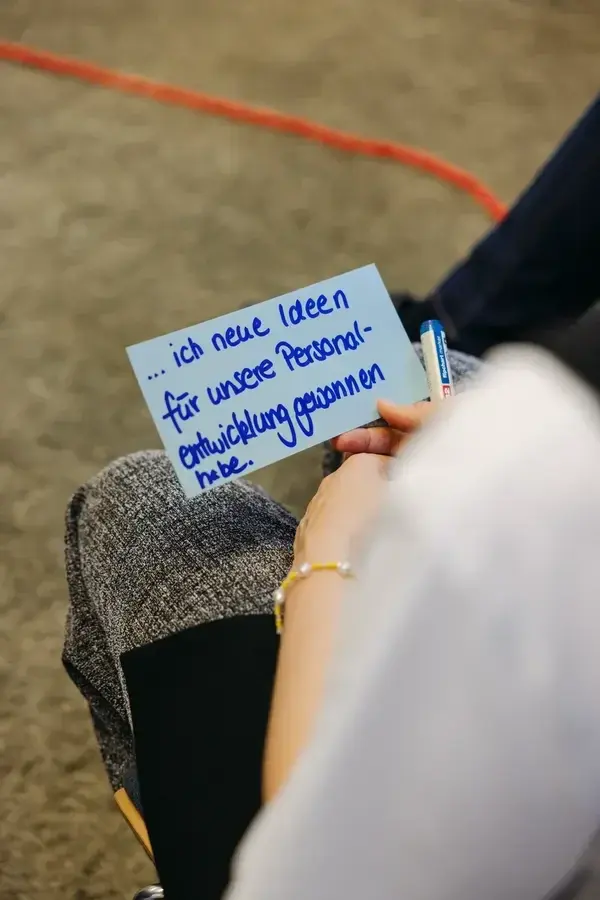 ... ich neue Ideen
für unsere Personal-
entwicklung gewonnen
habe.